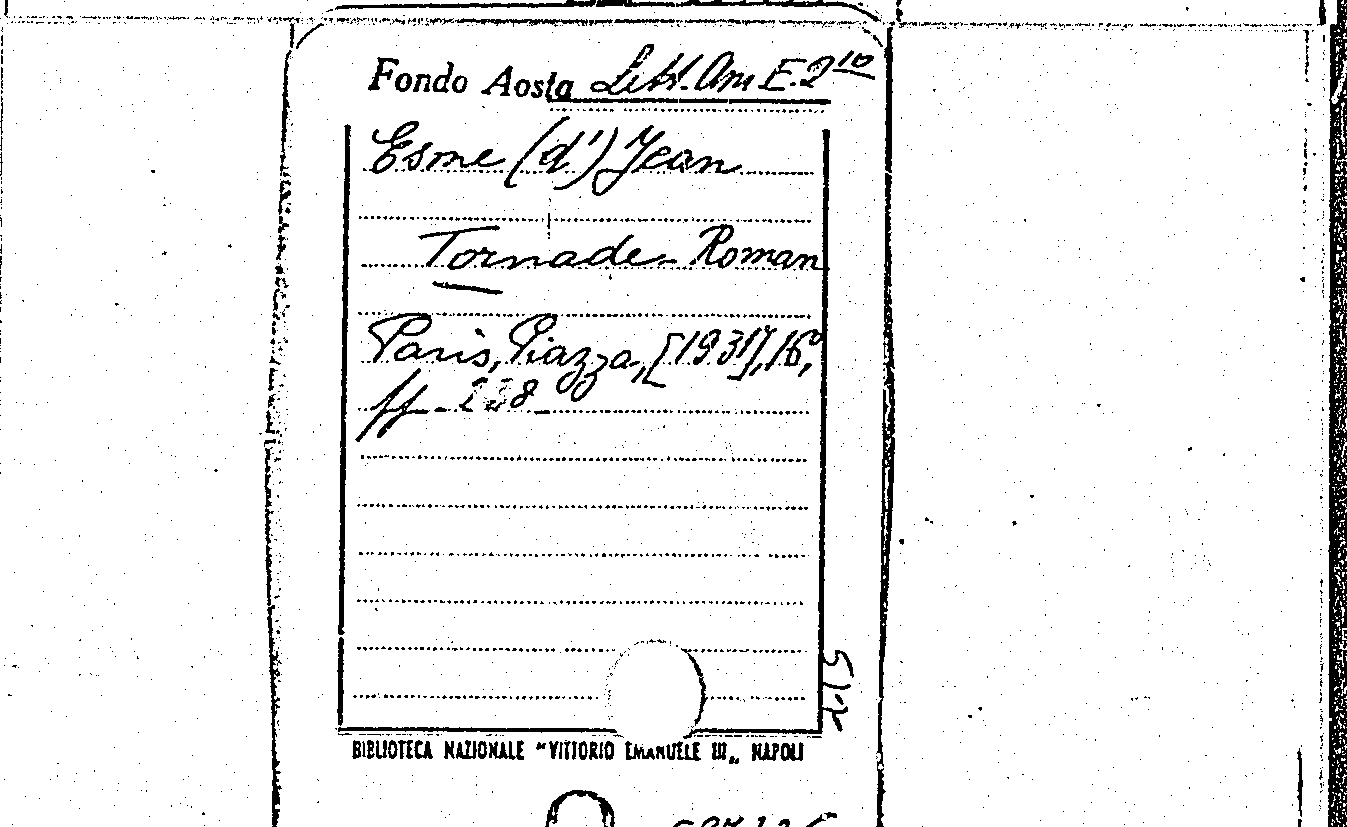 Fondo Aosta Libr. Am E. 2 10
Esme (d') Jean
Tornade - Roman
Paris, Piazza, [1931], 16°,
ff. 238
BIBLIOTECA NAZIONALE "VITTORIO EMANUELE III„ NAPOLI